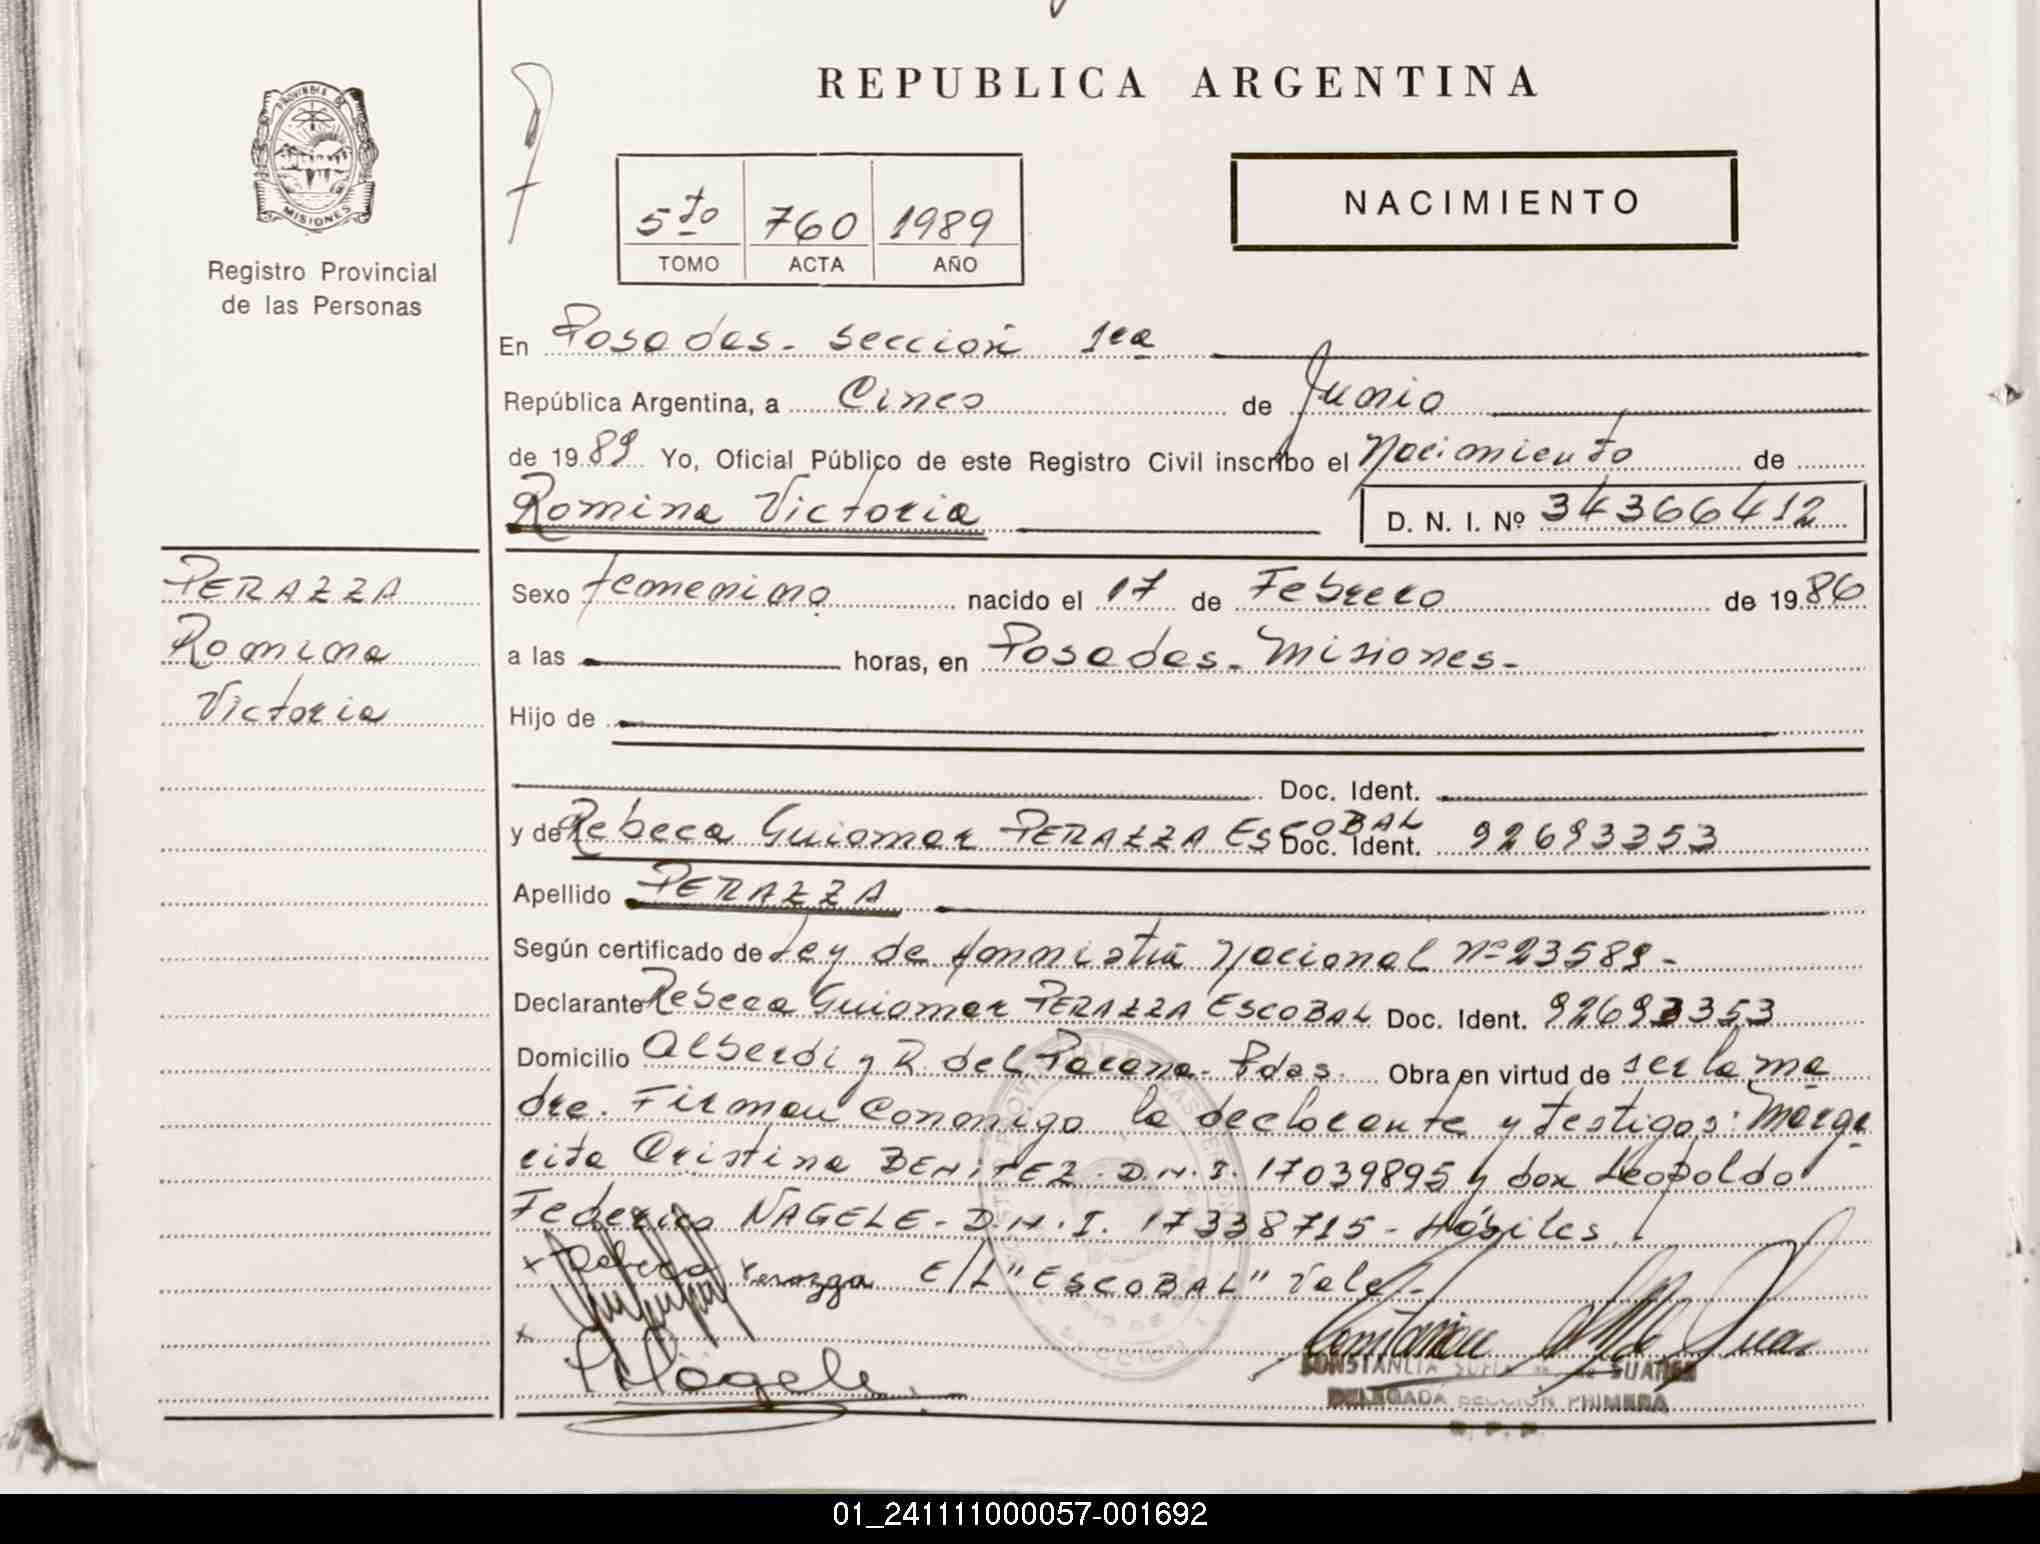 REPUBLICA ARGENTINA
PROVINCIA DE
MISIONES
Registro Provincial
de las Personas
5to 760 1989
TOMO ACTA AÑO
NACIMIENTO
En Posadas - sección 1ra
República Argentina, a Cinco de Junio
de 1989 Yo, Oficial Público de este Registro Civil inscribo el Nacimiento de
Romina Victoria D. N. I. Nº 34366412
PERAZZA
Romina
Victoria
Sexo femenino nacido el 17 de Febrero de 1986
a las horas, en Posadas - Misiones -
Hijo de
Doc. Ident.
y de Rebeca Guiomar PERAZZA ESCOBAL Doc. Ident. 92693353
Apellido PERAZZA
Según certificado de Ley de Amnistía Nacional Nº 23589 -
Declarante Rebeca Guiomar PERAZZA ESCOBAL Doc. Ident. 92693353
Domicilio Alberdi y R. del Parana - Pdas. Obra en virtud de ser la ma
dre. Firman conmigo la declarante y testigos: Marga
rita Cristina BENITEZ - D.N.I. 17039895 y don Leopoldo
Federico NAGELE - D.N.I. 17338715 - Hábiles
x Rebeca Perazza E/L "ESCOBAL" Vale -
x
Nägele
CONSTANCIA SUAREZ
DELEGADA SECCION PRIMERA
R. P. P.
01_241111000057-001692